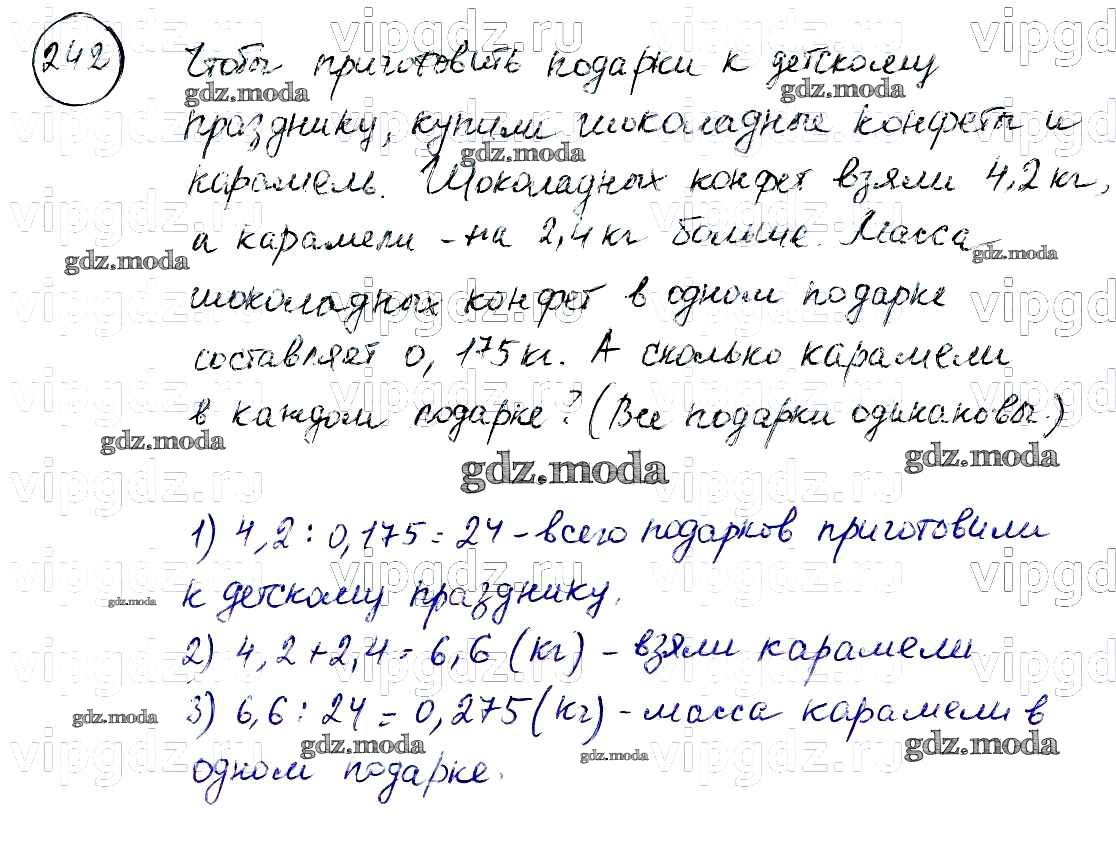 242
Чтобы приготовить подарки к детскому
празднику, купили шоколадные конфеты и
карамель. Шоколадных конфет взяли 4,2 кг,
а карамели - на 2,4 кг больше. Масса
шоколадных конфет в одном подарке
составляет 0,175 кг. А сколько карамели
в каждом подарке? (Все подарки одинаковы.)
1) 4,2 : 0,175 = 24 - всего подарков приготовили
к детскому празднику.
2) 4,2 + 2,4 = 6,6 (кг) - взяли карамели
3) 6,6 : 24 = 0,275 (кг) - масса карамели в
одном подарке.
gdz.moda
vipgdz.ru